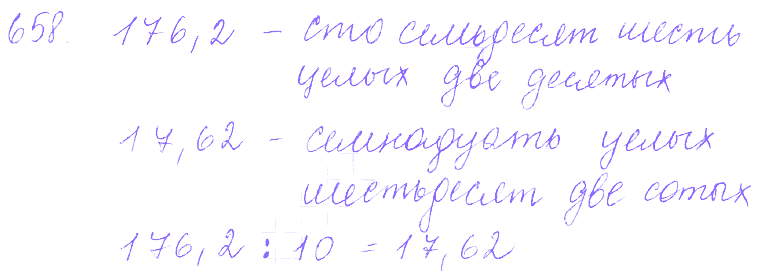 658. 176,2 – сто семьдесят шесть
целых две десятых
17,62 – семнадцать целых
шестьдесят две сотых
176,2 : 10 = 17,62